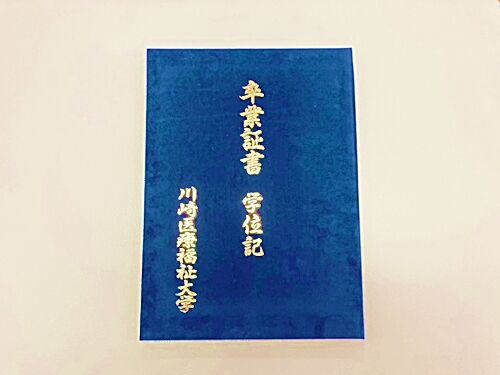 卒業証書 学位記
川崎医療福祉大学